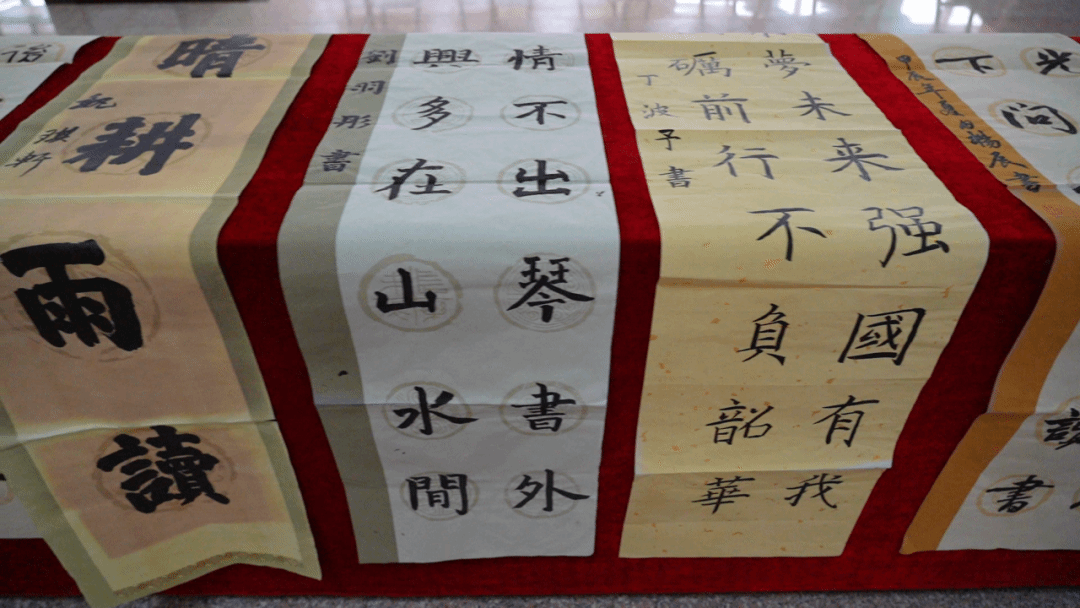 晴耕雨讀
琪軒
情不出琴書外
興多在山水間
劉羽彤書
夢未来强國有我
礪前行不負韶華
丁波予書
光
下问
書
甲辰年夏月楊辰書